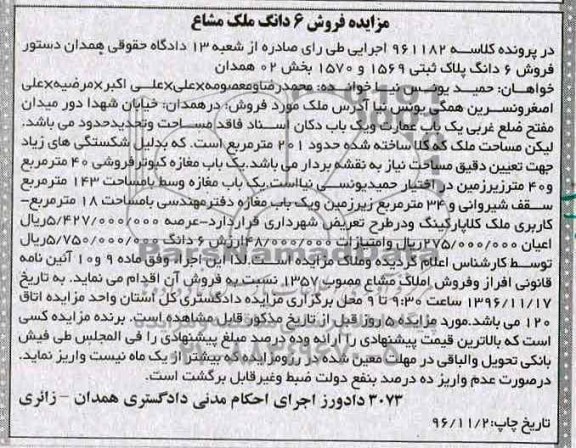 مزایده فروش ۶ دانگ ملک مشاع
در پرونده کلاسه ۹۶۱۱۸۲ اجرایی طی رای صادره از شعبه ۱۳ دادگاه حقوقی همدان دستور
فروش ۶ دانگ پلاک ثبتی ۱۵۶۹ و ۱۵۷۰ بخش ۰۲ همدان
خواهان: حمید یونسی نیا خوانده: محمدرضاومعصومه×علی×علی اکبر×مرضیه×علی
اصغرونسرین همگی یونس نیا آدرس ملک مورد فروش: درهمدان: خیابان شهدا دور میدان
مفتح ضلع غربی یک باب عمارت ویک باب دکان اسناد فاقد مساحت وتحدیدحدود می باشد.
لیکن مساحت ملک که کلا ساخته شده حدود ۲۰۱ مترمربع است. که بدلیل شکستگی های زیاد
جهت تعیین دقیق مساحت نیاز به نقشه بردار می باشد.یک باب مغازه کبوترفروشی ۴۰ مترمربع
و۴۰ مترزیرزمین در اختیار حمیدیونسی نیااست.یک باب مغازه وسط بامساحت ۱۴۳ مترمربع
سقف شیروانی و ۳۴ مترمربع زیرزمین ویک باب مغازه دفترمهندسی بامساحت ۱۸ مترمربع-
کاربری ملک کلاپارکینگ ودرطرح تعریض شهرداری قراردارد-عرصه ۵/۴۲۷/۰۰۰/۰۰۰ریال
اعیان ۲۷۵/۰۰۰/۰۰۰ریال وامتیازات ۴۸/۰۰۰/۰۰۰ارزش ۶ دانگ ۵/۷۵۰/۰۰۰/۰۰۰ریال
توسط کارشناس اعلام گردیده وملاک مزایده است.لذا این اجرا وفق ماده ۹ و۱۰ آئین نامه
قانونی افراز وفروش املاک مشاع مصوب ۱۳۵۷ نسبت به فروش آن اقدام می نماید. به تاریخ
۱۳۹۶/۱۱/۱۷ ساعت ۹:۳۰ تا ۹ محل برگزاری مزایده دادگستری کل استان واحد مزایده اتاق
۱۲۰ می باشد.مورد مزایده ۵ روز قبل از تاریخ مذکور قابل مشاهده است. برنده مزایده کسی
است که بالاترین قیمت پیشنهادی را ارائه وده درصد مبلغ پیشنهادی را فی المجلس طی فیش
بانکی تحویل والباقی در مهلت معین شده در رزومزایده که بیشتر از یک ماه نیست واریز نماید.
درصورت عدم واریز ده درصد بنفع دولت ضبط وغیرقابل برگشت است.
۳۰۷۳ دادورز اجرای احکام مدنی دادگستری همدان - زائری
تاریخ چاپ:۹۶/۱۱/۲